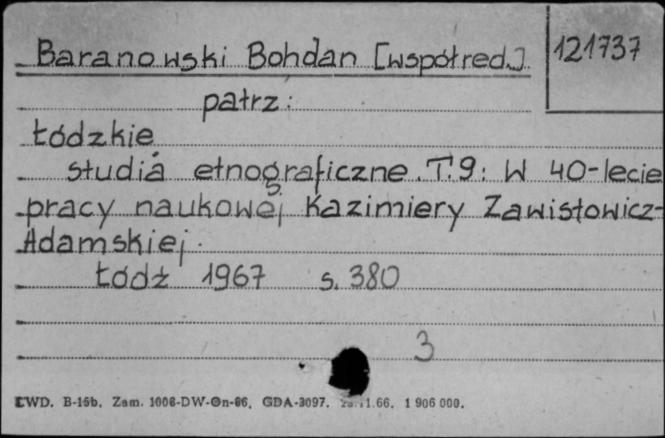 Baranowski Bohdan [współred.] 121737
patrz:
Łódzkie
studia etnograficzne. T.9: W 40-lecie
pracy naukowej Kazimiery Zawistowicz-
Adamskiej.
Łódź 1967 s. 380
3
ŁWD. B-15b. Zam. 1008-DW-Gn-66. GDA-3097. 11.66. 1 906 000.